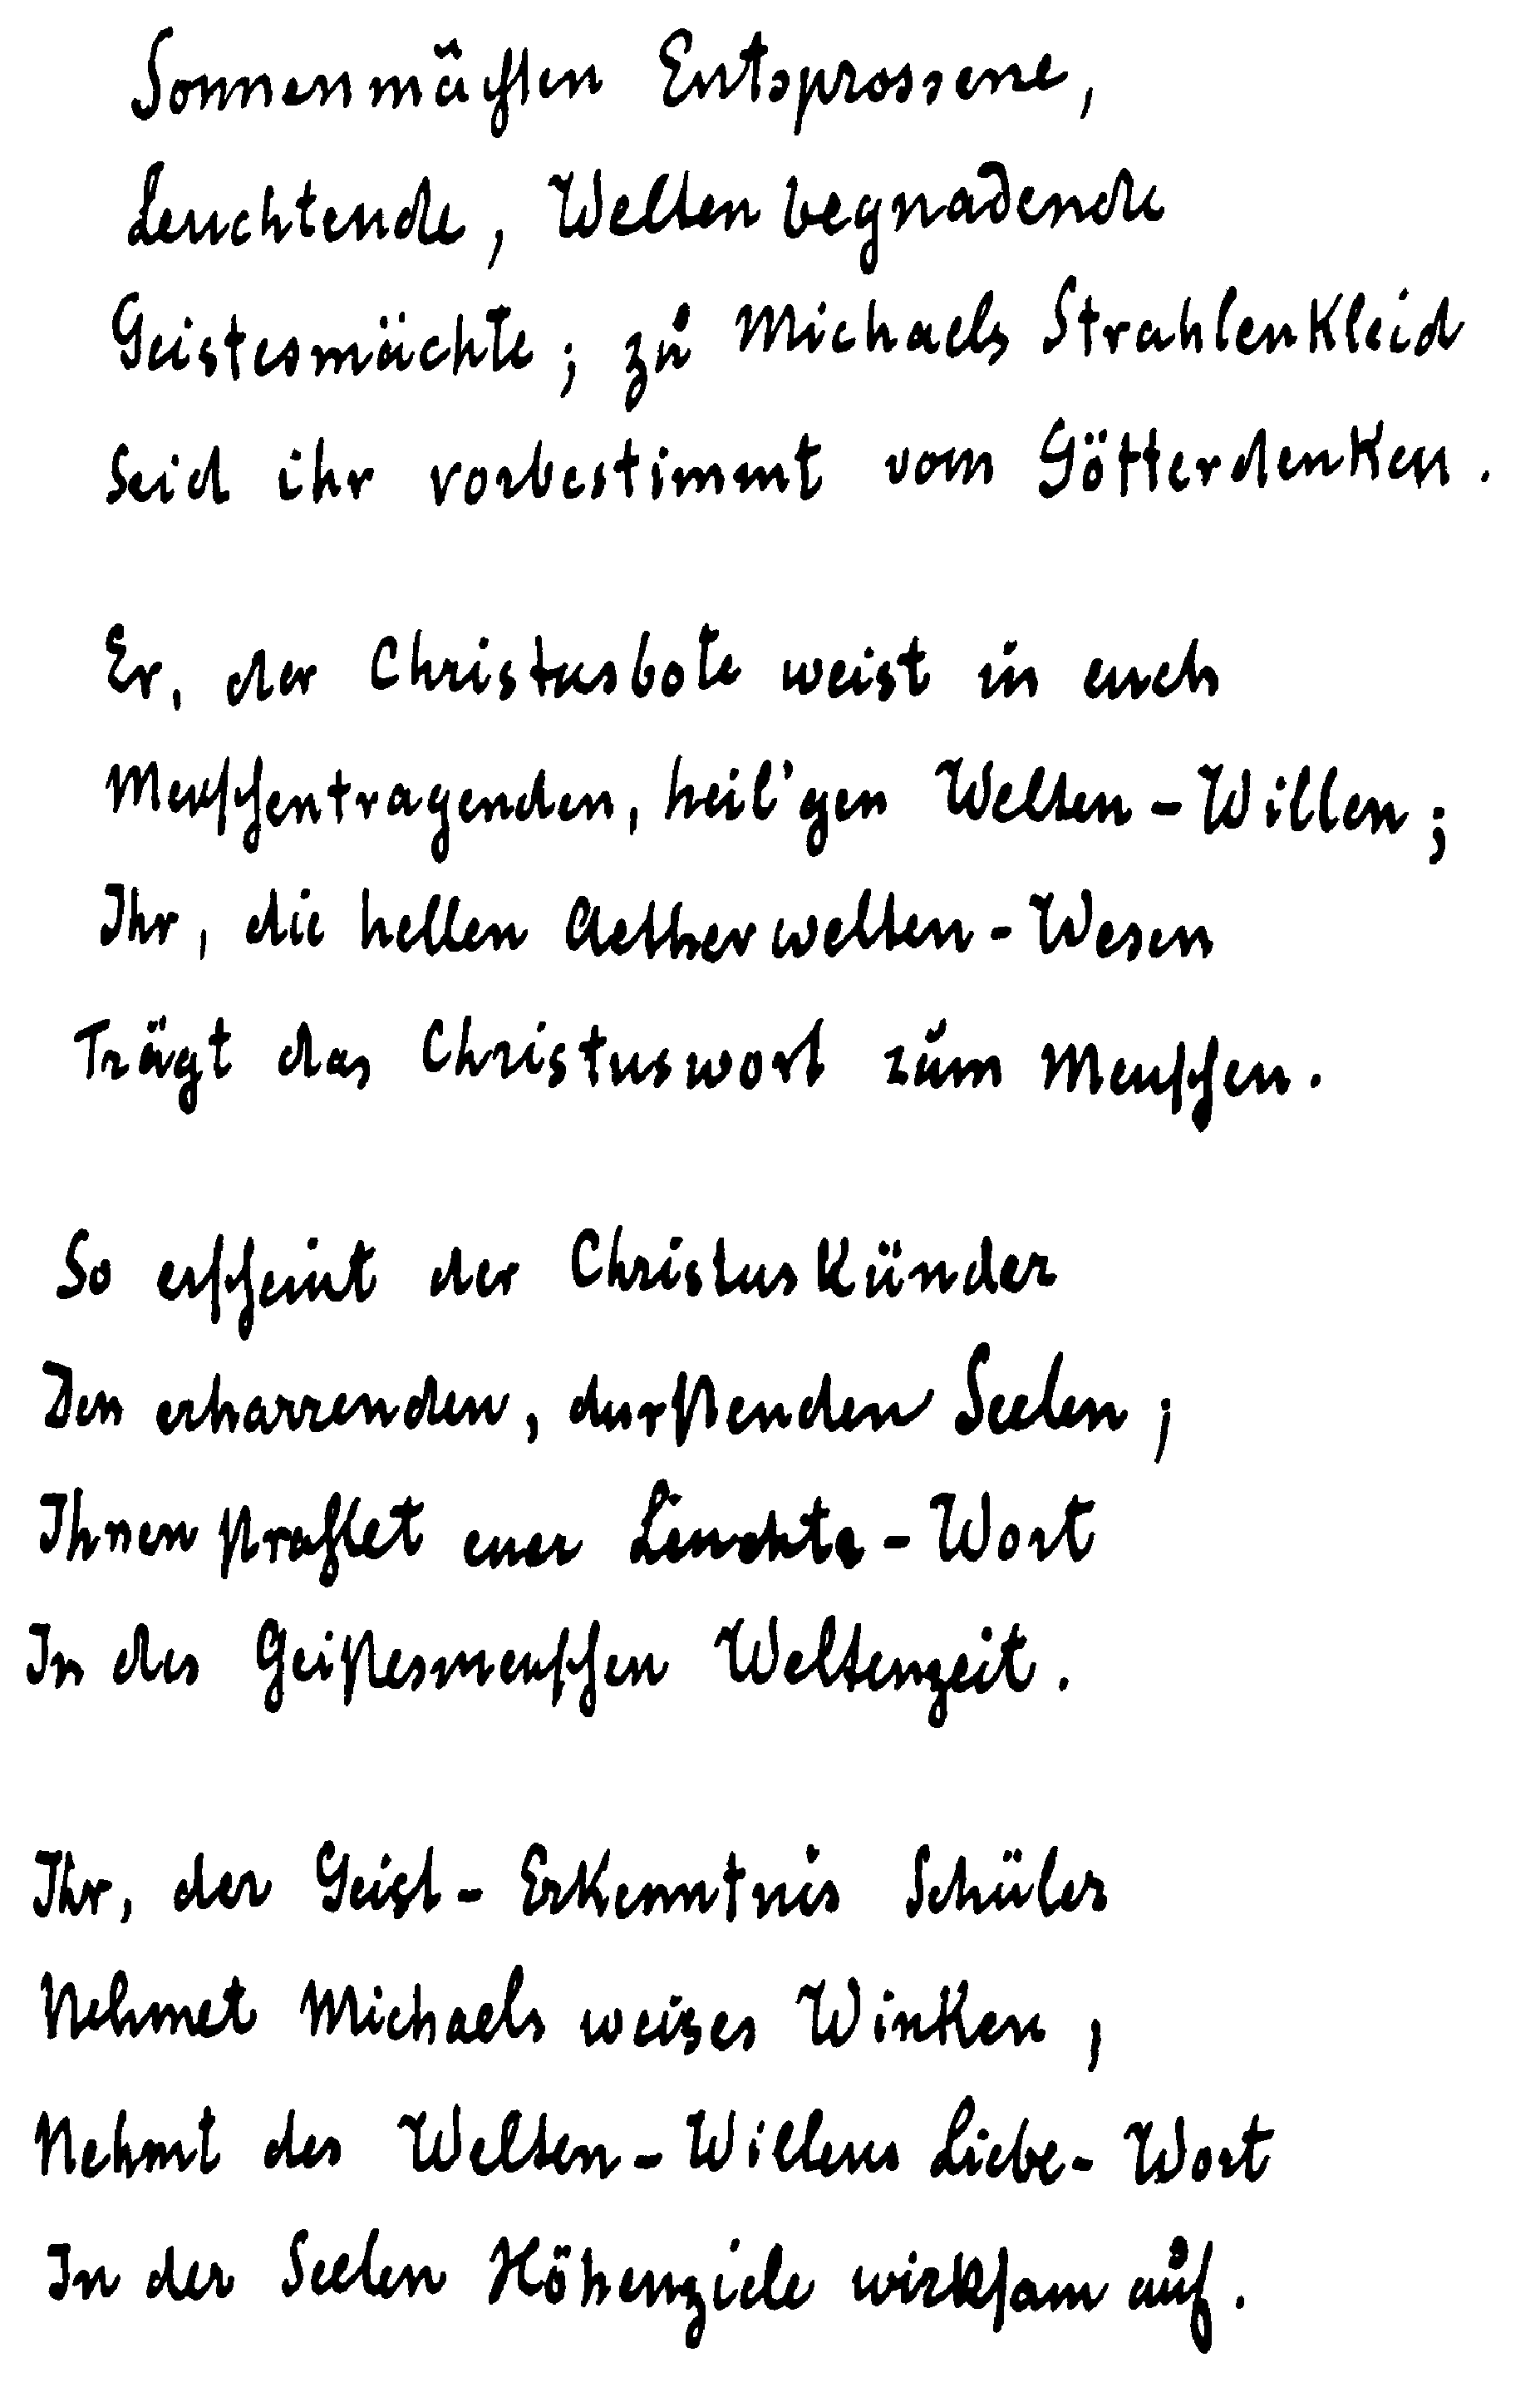 Sonnenmächten Entsprossene,
Leuchtende, Welten begnadende
Geistesmächte; zu Michaels Strahlenkleid
Seid ihr vorbestimmt vom Götterdenken.
Er, der Christusbote weist in euch
Menschentragenden, heil'gen Welten-Willen;
Ihr, die hellen Aetherwelten-Wesen
Trägt das Christuswort zum Menschen.
So erscheint der Christuskünder
Den erharrenden, durstenden Seelen;
Ihnen strahlet euer Leuchte-Wort
In des Geistesmenschen Weltenzeit.
Ihr, der Geist-Erkenntnis Schüler
Nehmet Michaels weises Winken,
Nehmt des Welten-Willens Liebe-Wort
In der Seelen Höhenziele wirksam auf.